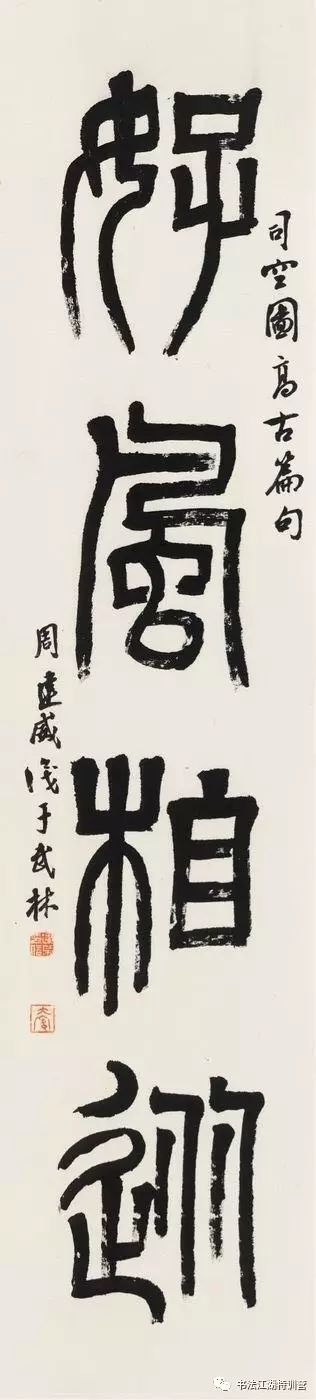 司空圖高古篇句
好風相從
周威于武林
书法江湖特训营